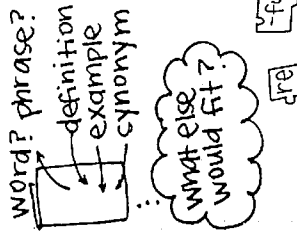 word? phrase?
definition
example
synonym
...
what else
would fit?
-fu
dre